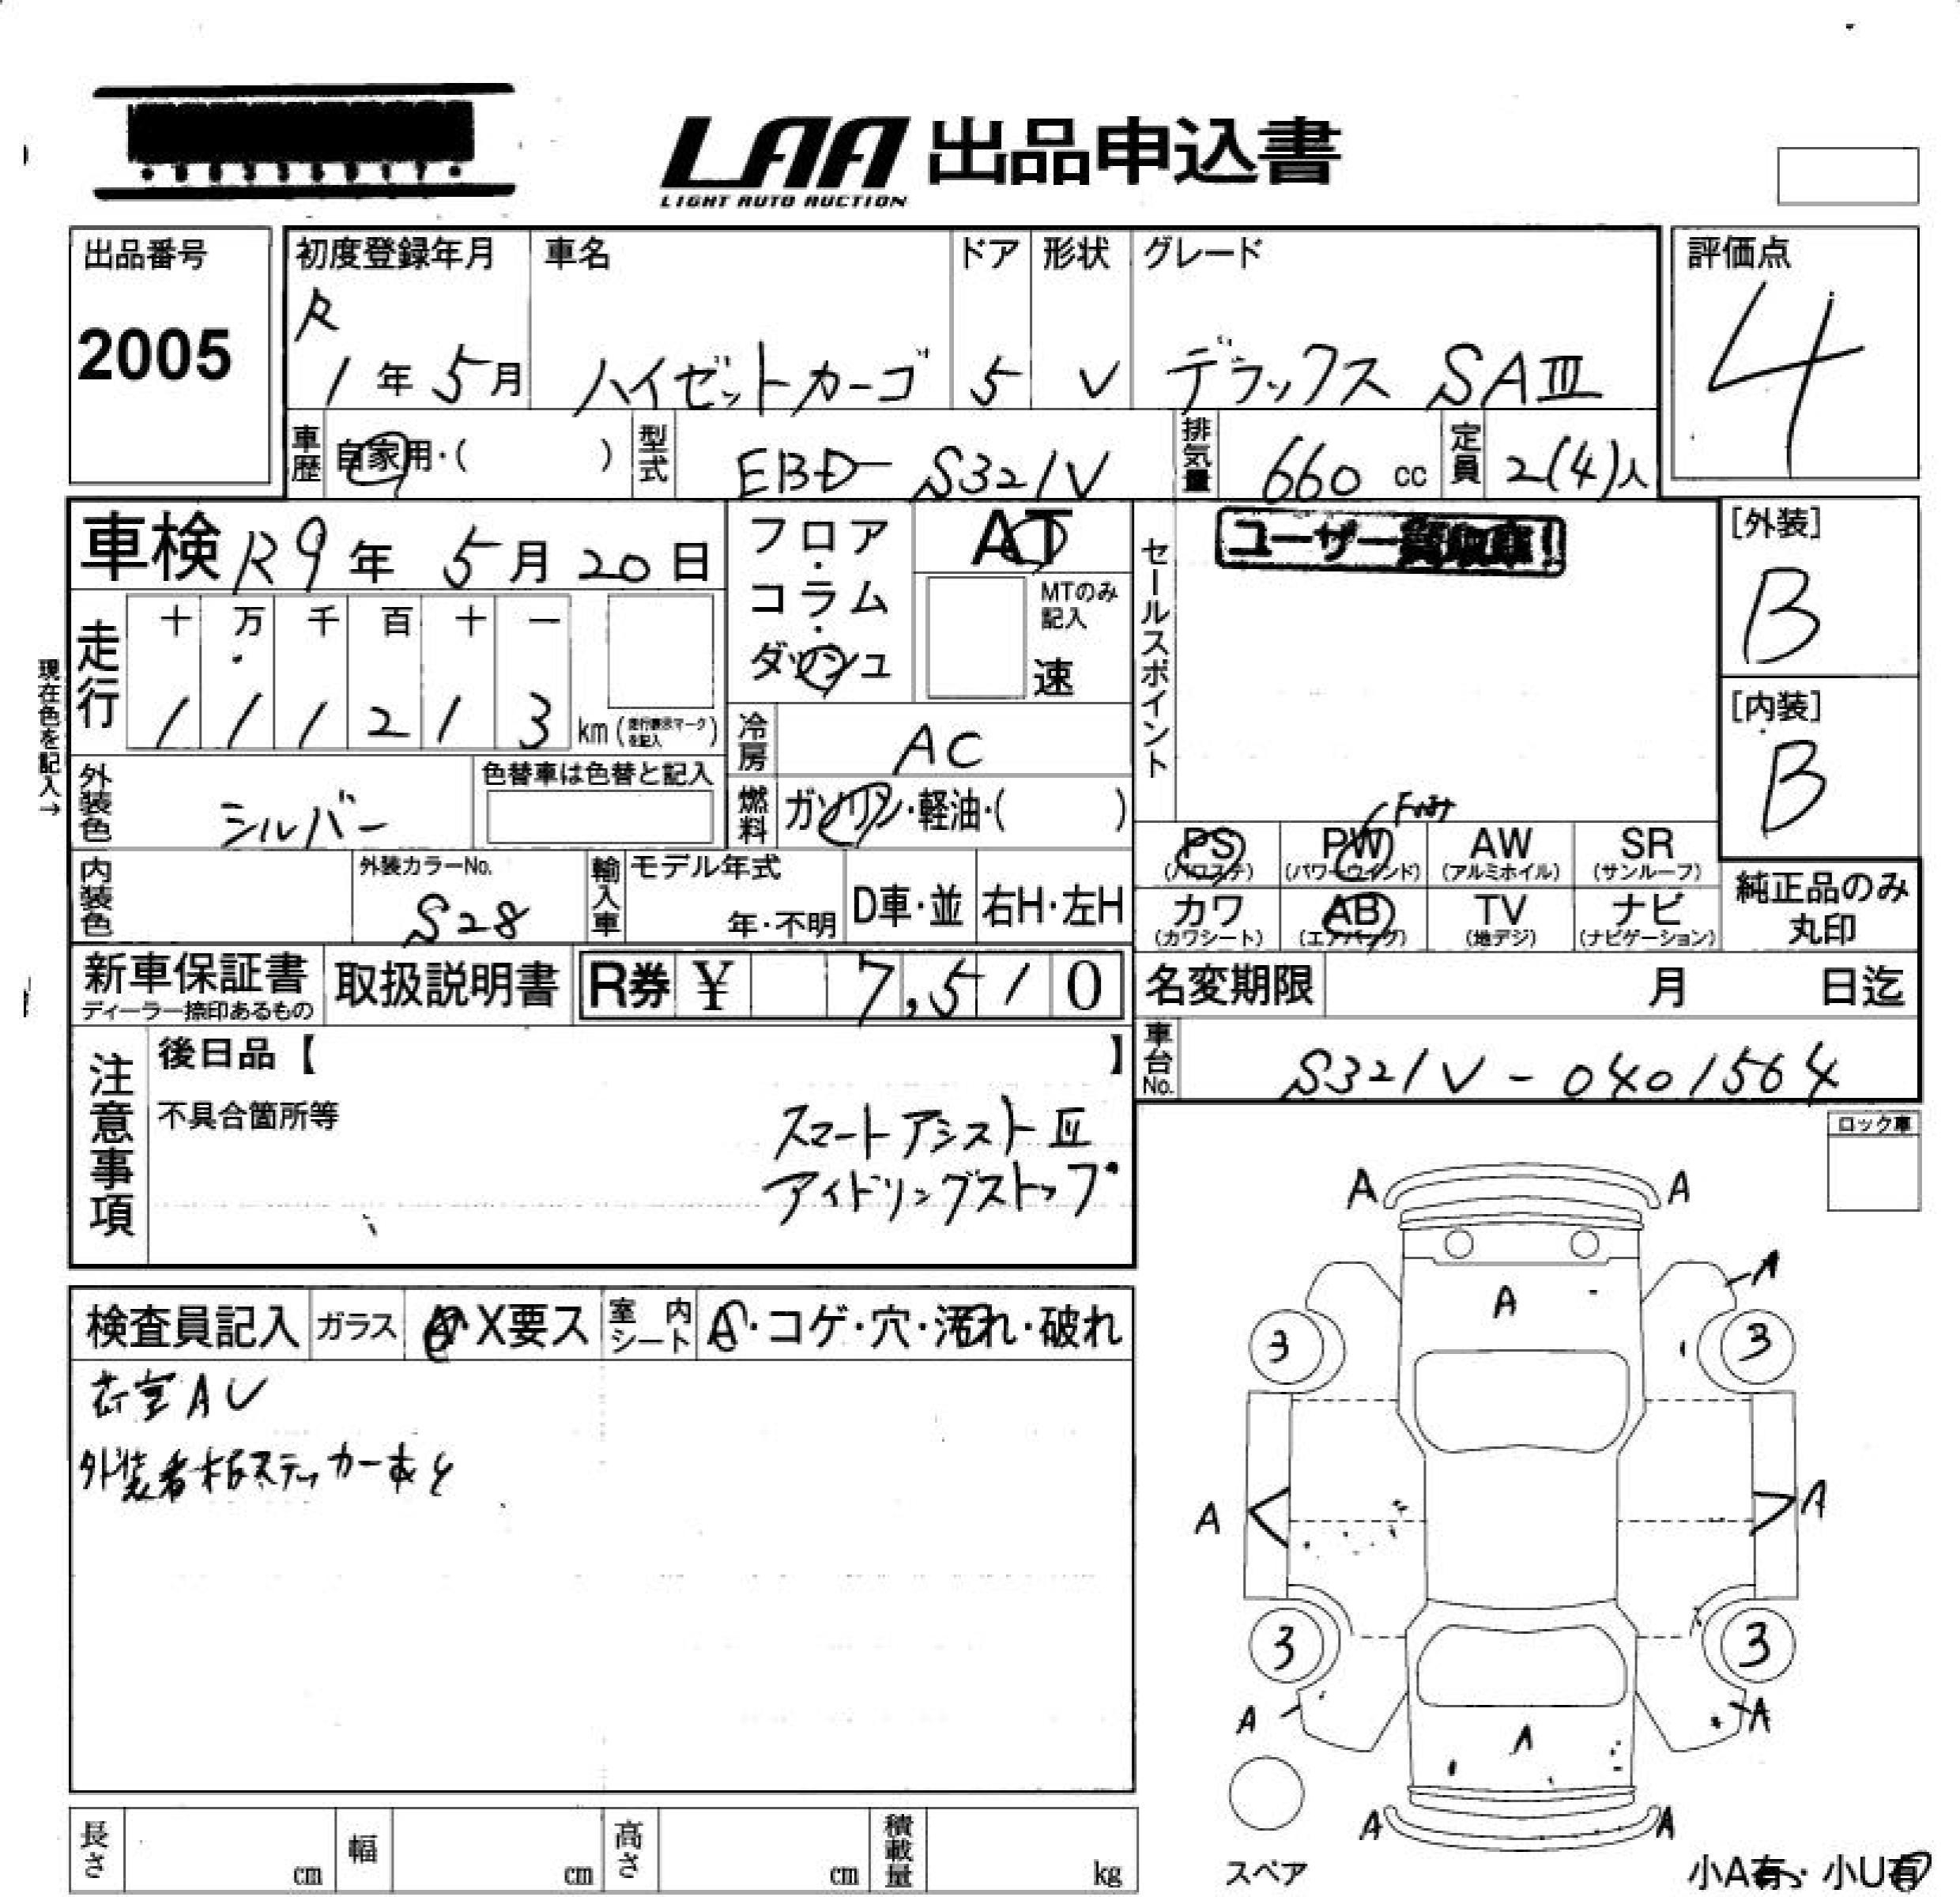 LAA 出品申込書
LIGHT AUTO AUCTION
出品番号
2005
初度登録年月
R
1年5月
車名
ハイゼットカーゴ
ドア
5
形状
V
グレード
デラックス SAⅢ
評価点
4
車歴 自家用・( )
型式 EBD-S321V
排気量 660 cc
定員 2(4)人
車検 R9年 5月 20日
フロア・コラム・ダッシュ
AT
MTのみ記入
速
セールスポイント
ユーザー買取車!
[外装]
B
[内装]
B
現在色を記入→
走行
十 万 千 百 十 一
1 1 1 2 1 3 km (走行表示マークを記入)
冷房 AC
燃料 ガソリン・軽油・( )
外装色 シルバー
色替車は色替と記入
内装色
外装カラーNo.
S28
輸入車
モデル年式
年・不明
D車・並
右H・左H
PS
(パワステ)
PW
(パワーウインド)
AW
(アルミホイル)
SR
(サンルーフ)
カワ
(カワシート)
AB
(エアバッグ)
TV
(地デジ)
ナビ
(ナビゲーション)
純正品のみ
丸印
新車保証書
ディーラー捺印あるもの
取扱説明書
R券 ¥ 7,510
名変期限 月 日迄
車台No. S321V-0401564
注意事項
後日品【 】
不具合箇所等
スマートアシストⅢ
アイドリングストップ
ロック車
検査員記入
ガラス
X要ス
室内シート
・コゲ・穴・汚れ・破れ
荷室AU
外装看板ステッカーあと
A A
A
A
3 3
A A
3 3
A A
A
A A
スペア
小A有・小U有
長さ cm
幅 cm
高さ cm
積載量 kg